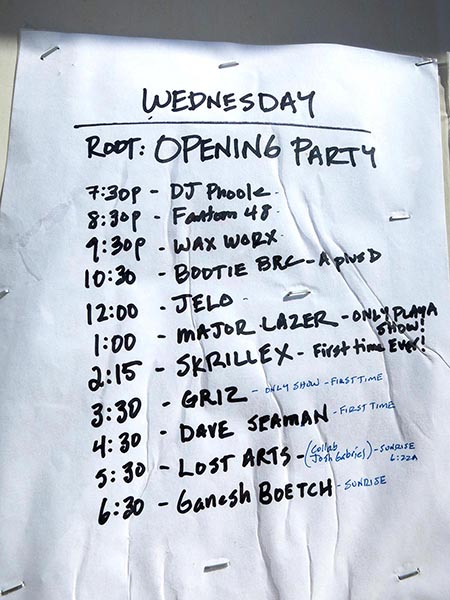 WEDNESDAY
ROOT: OPENING PARTY
7:30p - DJ Phoole
8:30p - Fantom 48
9:30p - WAX WORX
10:30 - BOOTIE BRC - A plus D
12:00 - JELO
1:00 - MAJOR LAZER - ONLY PLAYA SHOW!
2:15 - SKRILLEX - First time Ever!
3:30 - GRIZ - ONLY SHOW - FIRST TIME
4:30 - DAVE SEAMAN - FIRST TIME
5:30 - LOST ARTS - (Collab Josh Gabriel) - SUNRISE 6:22A
6:30 - Ganesh BOETCH - SUNRISE